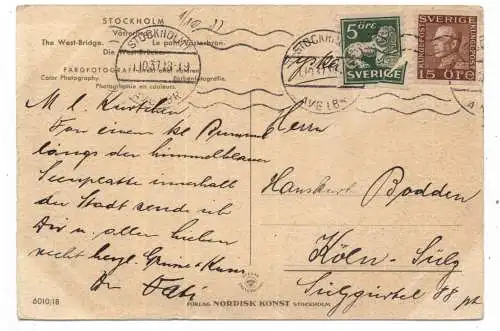 STOCKHOLM
1/10 37
The West-Bridge. Le pont Västerbron.
Die West-Brücke.
Color Photography. Farbenfotografie.
Photographie en couleurs.
STOCKHOLM
1.10.37
5 ÖRE
SVERIGE
SVERIGE
15 ÖRE
M. l. Kurtchen
Von einem kl. Bummel
längs der himmelblauen
Seenplatte innerhalb
der Stadt sende ich
Dir u. allen lieben
recht herzl. Grüsse & Kuss
Dr Vati
Herrn
Hanskurt Bodden
Köln-Sülz
Sülzgürtel 88 pt
6010/18
FÖRLAG NORDISK KONST STOCKHOLM